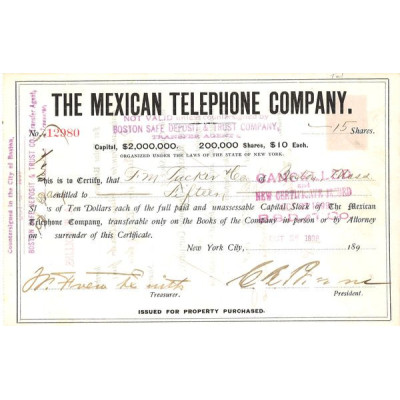 THE MEXICAN TELEPHONE COMPANY.
NOT VALID
BOSTON SAFE DEPOSIT & TRUST COMPANY,
TRANSFER AGENT
No. 12980
15 Shares.
Capital, $2,000,000. 200,000 Shares, $10 Each.
ORGANIZED UNDER THE LAWS OF THE STATE OF NEW YORK.
This is to Certify, that F. M. Tucker & Co Boston, Mass
Fifteen
of Ten Dollars each of the full paid and unassessable Capital Stock of The Mexican
Telephone Company, transferable only on the Books of the Company in person or by Attorney
on surrender of this Certificate.
New York City, 189
Treasurer.
President.
ISSUED FOR PROPERTY PURCHASED.
Countersigned in the City of Boston,
BOSTON SAFE DEPOSIT & TRUST CO. Transfer Agent,
AND
NEW CERTIFICATE ISSUED